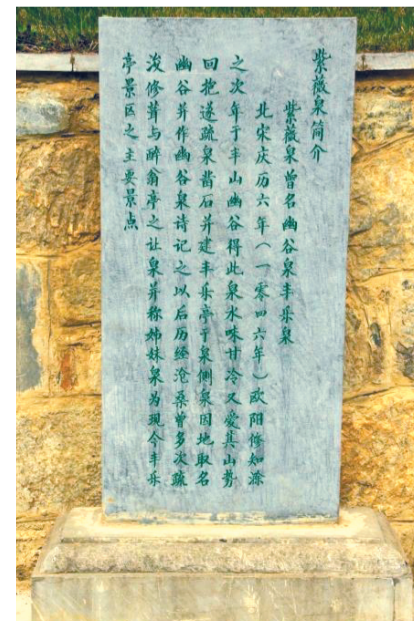 紫薇泉简介
紫薇泉曾名幽谷泉丰乐泉
北宋庆历六年（一零四六年）欧阳修知滁
之次年于丰山幽谷得此泉水味甘冷又爱其山势
回抱遂疏泉凿石并建丰乐亭于泉侧泉因地取名
幽谷并作幽谷泉诗记之以后历经沧桑曾多次疏
浚修葺与醉翁亭之让泉并称姊妹泉为现今丰乐
亭景区之主要景点